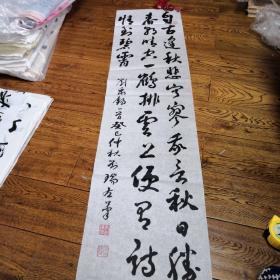 自古逢秋悲寂寥我言秋日胜
春朝晴空一鹤排云上便引诗
情到碧霄 刘禹锡 癸巳仲秋